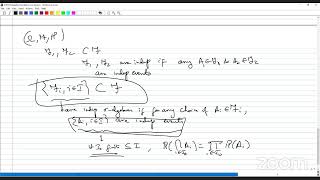 (Ω, 𝓕, ℙ)
𝓕₁, 𝓕₂ ⊂ 𝓕
𝓕₁, 𝓕₂ are indep if any A₁∈𝓕₁ & A₂∈𝓕₂
are indep events
{𝓕ᵢ, i∈I} ⊂ 𝓕
have indep σ-algebras if for any choice of Aᵢ∈𝓕ᵢ,
{Aᵢ, i∈I} are indep events
∀ I₀ finite ⊆ I, ℙ(⋂ Aᵢ) = ∏ ℙ(Aᵢ)
i∈I₀ i∈I₀
zoom